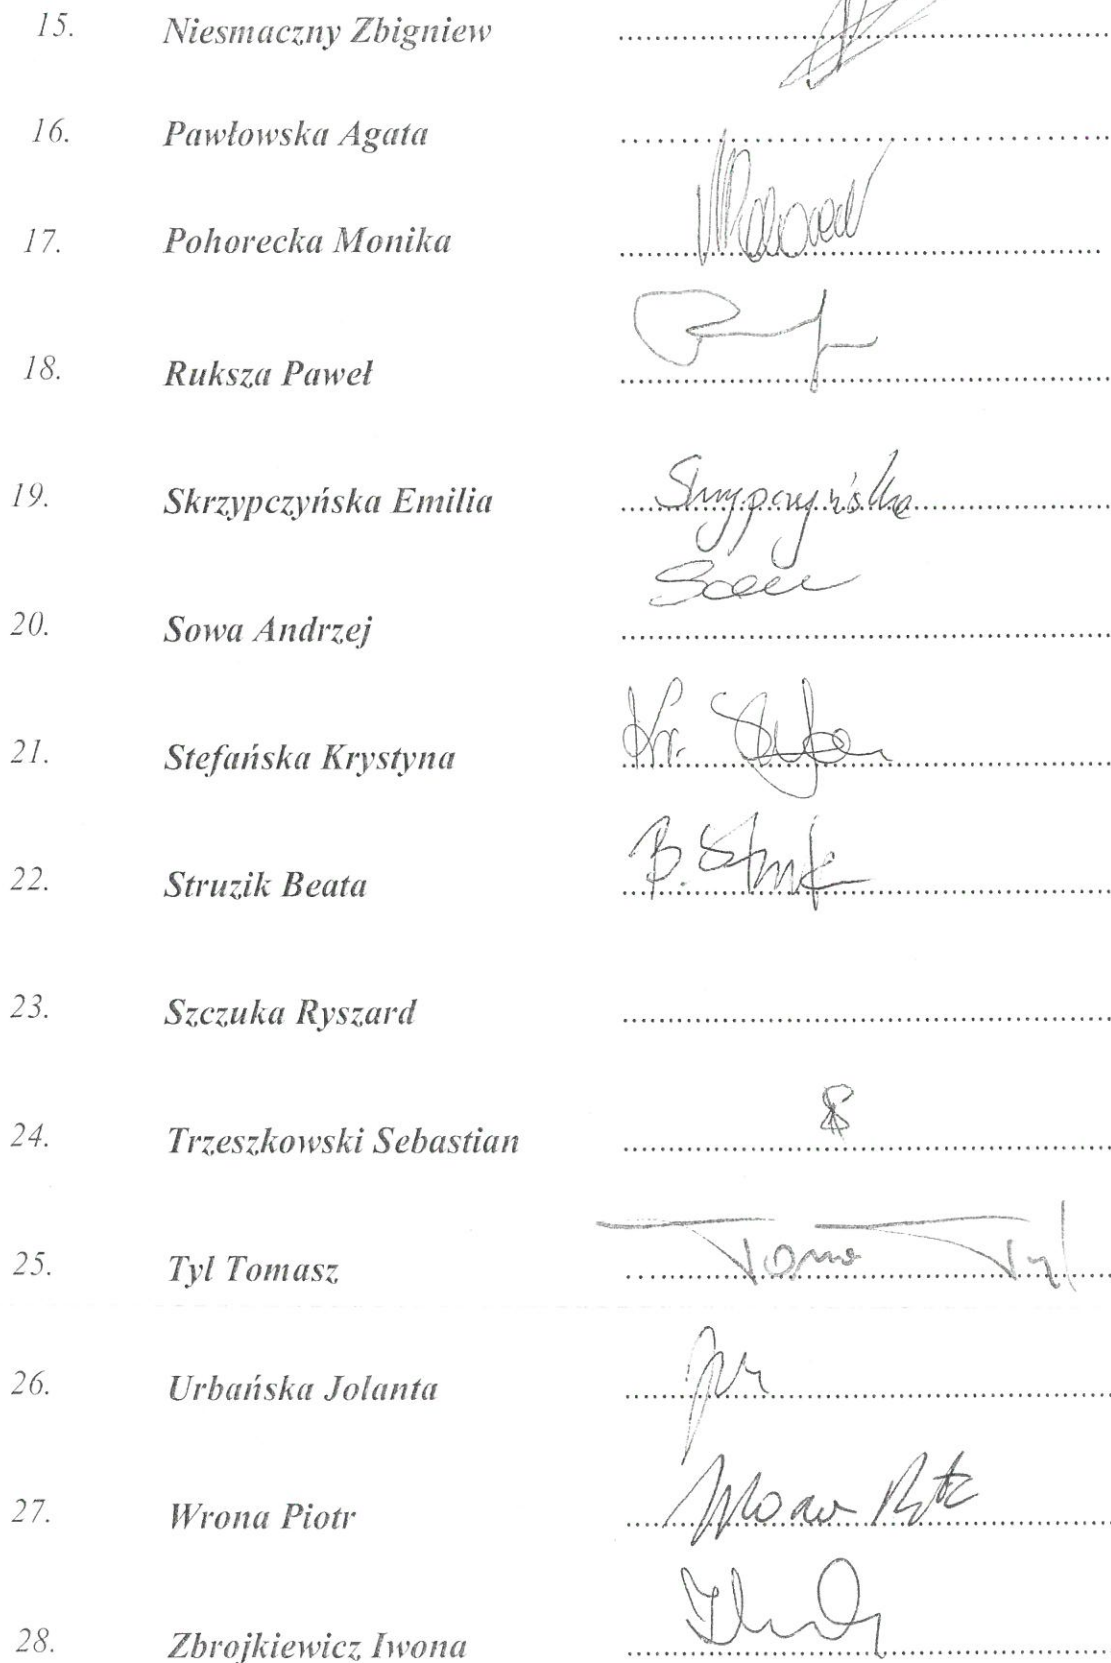 15. Niesmaczny Zbigniew
16. Pawłowska Agata
17. Pohorecka Monika
18. Ruksza Paweł
19. Skrzypczyńska Emilia Skrzypczyńska
20. Sowa Andrzej
21. Stefańska Krystyna Kr.
22. Struzik Beata B.
23. Szczuka Ryszard
24. Trzeszkowski Sebastian
25. Tyl Tomasz Tyl
26. Urbańska Jolanta
27. Wrona Piotr
28. Zbrojkiewicz Iwona